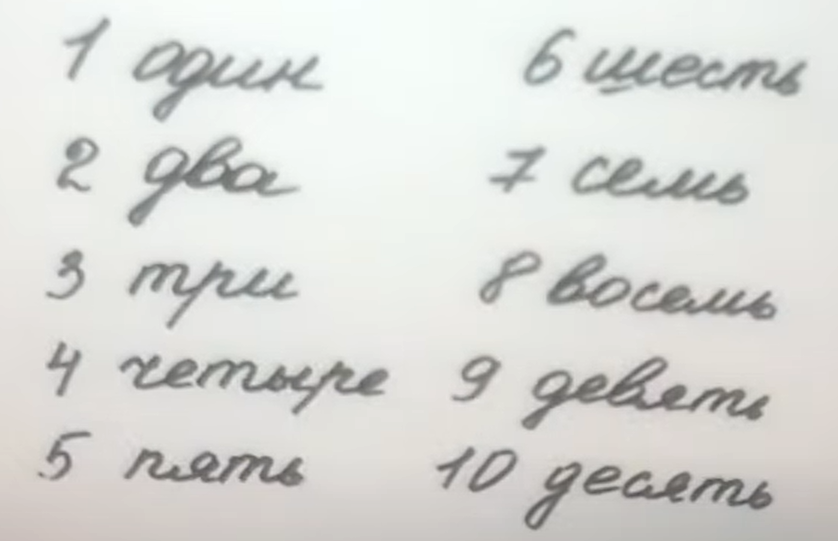 1 один
2 два
3 три
4 четыре
5 пять
6 шесть
7 семь
8 восемь
9 девять
10 десять